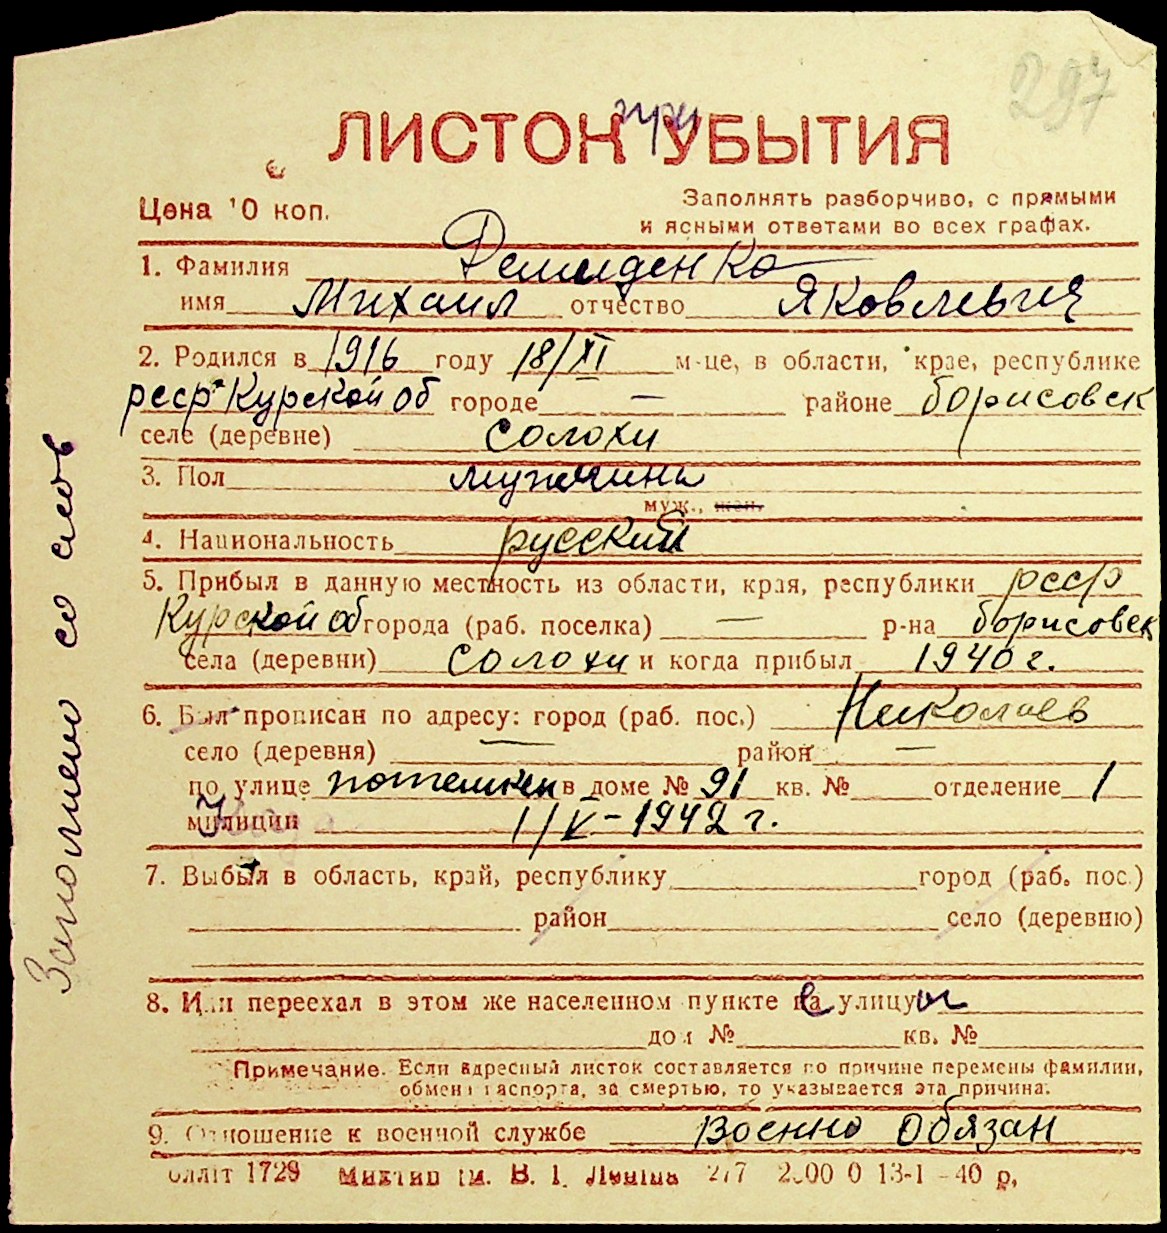 297
ЛИСТОК УБЫТИЯ
при
Цена 10 коп.
Заполнять разборчиво, с прямыми
и ясными ответами во всех графах.
1. Фамилия Демиденко
имя Михаил отчество Яковлевич
2. Родился в 1916 году 18/XI м-це, в области, крае, республике
рсср Курской об городе — районе борисовск
селе (деревне) солохи
3. Пол мужчина
муж., жен.
4. Национальность русский
5. Прибыл в данную местность из области, края, республики рсср
Курской об города (раб. поселка) — р-на борисовск
села (деревни) солохи и когда прибыл 1940 г.
6. Был прописан по адресу: город (раб. пос.) Николаев
село (деревня) — район —
по улице потемкин в доме № 91 кв. № отделение 1
милиции 1/V-1942 г.
7. Выбыл в область, край, республику город (раб. пос.)
район село (деревню)
8. Или переехал в этом же населенном пункте на улицу
дом № кв. №
Примечание. Если адресный листок составляется по причине перемены фамилии,
обмена паспорта, за смертью, то указывается эта причина.
9. Отношение к военной службе военно обязан
1729 В. І. 13-1-40 р.
Заполнено со слов